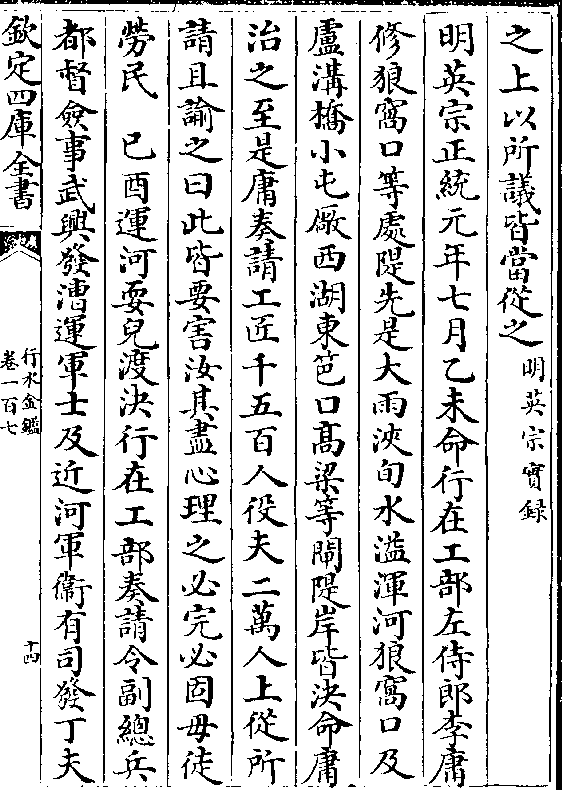 之上以所議皆當從之 明英宗實録
明英宗正統元年七月乙未命行在工部左侍郎李庸
修狼窩口等處隄先是大雨浹旬水溢渾河狼窩口及
盧溝橋小屯厰西湖東笆口髙梁等閘隄岸皆決命庸
治之至是庸奏請工匠千五百人役夫二萬人上從所
請且諭之曰此皆要害汝其盡心理之必完必固毋徒
勞民 已酉運河耍兒渡決行在工部奏請令副總兵
都督僉事武興發漕運軍士及近河軍衛有司發丁夫
欽定四庫全書
行水金鑑
卷一百七
十四